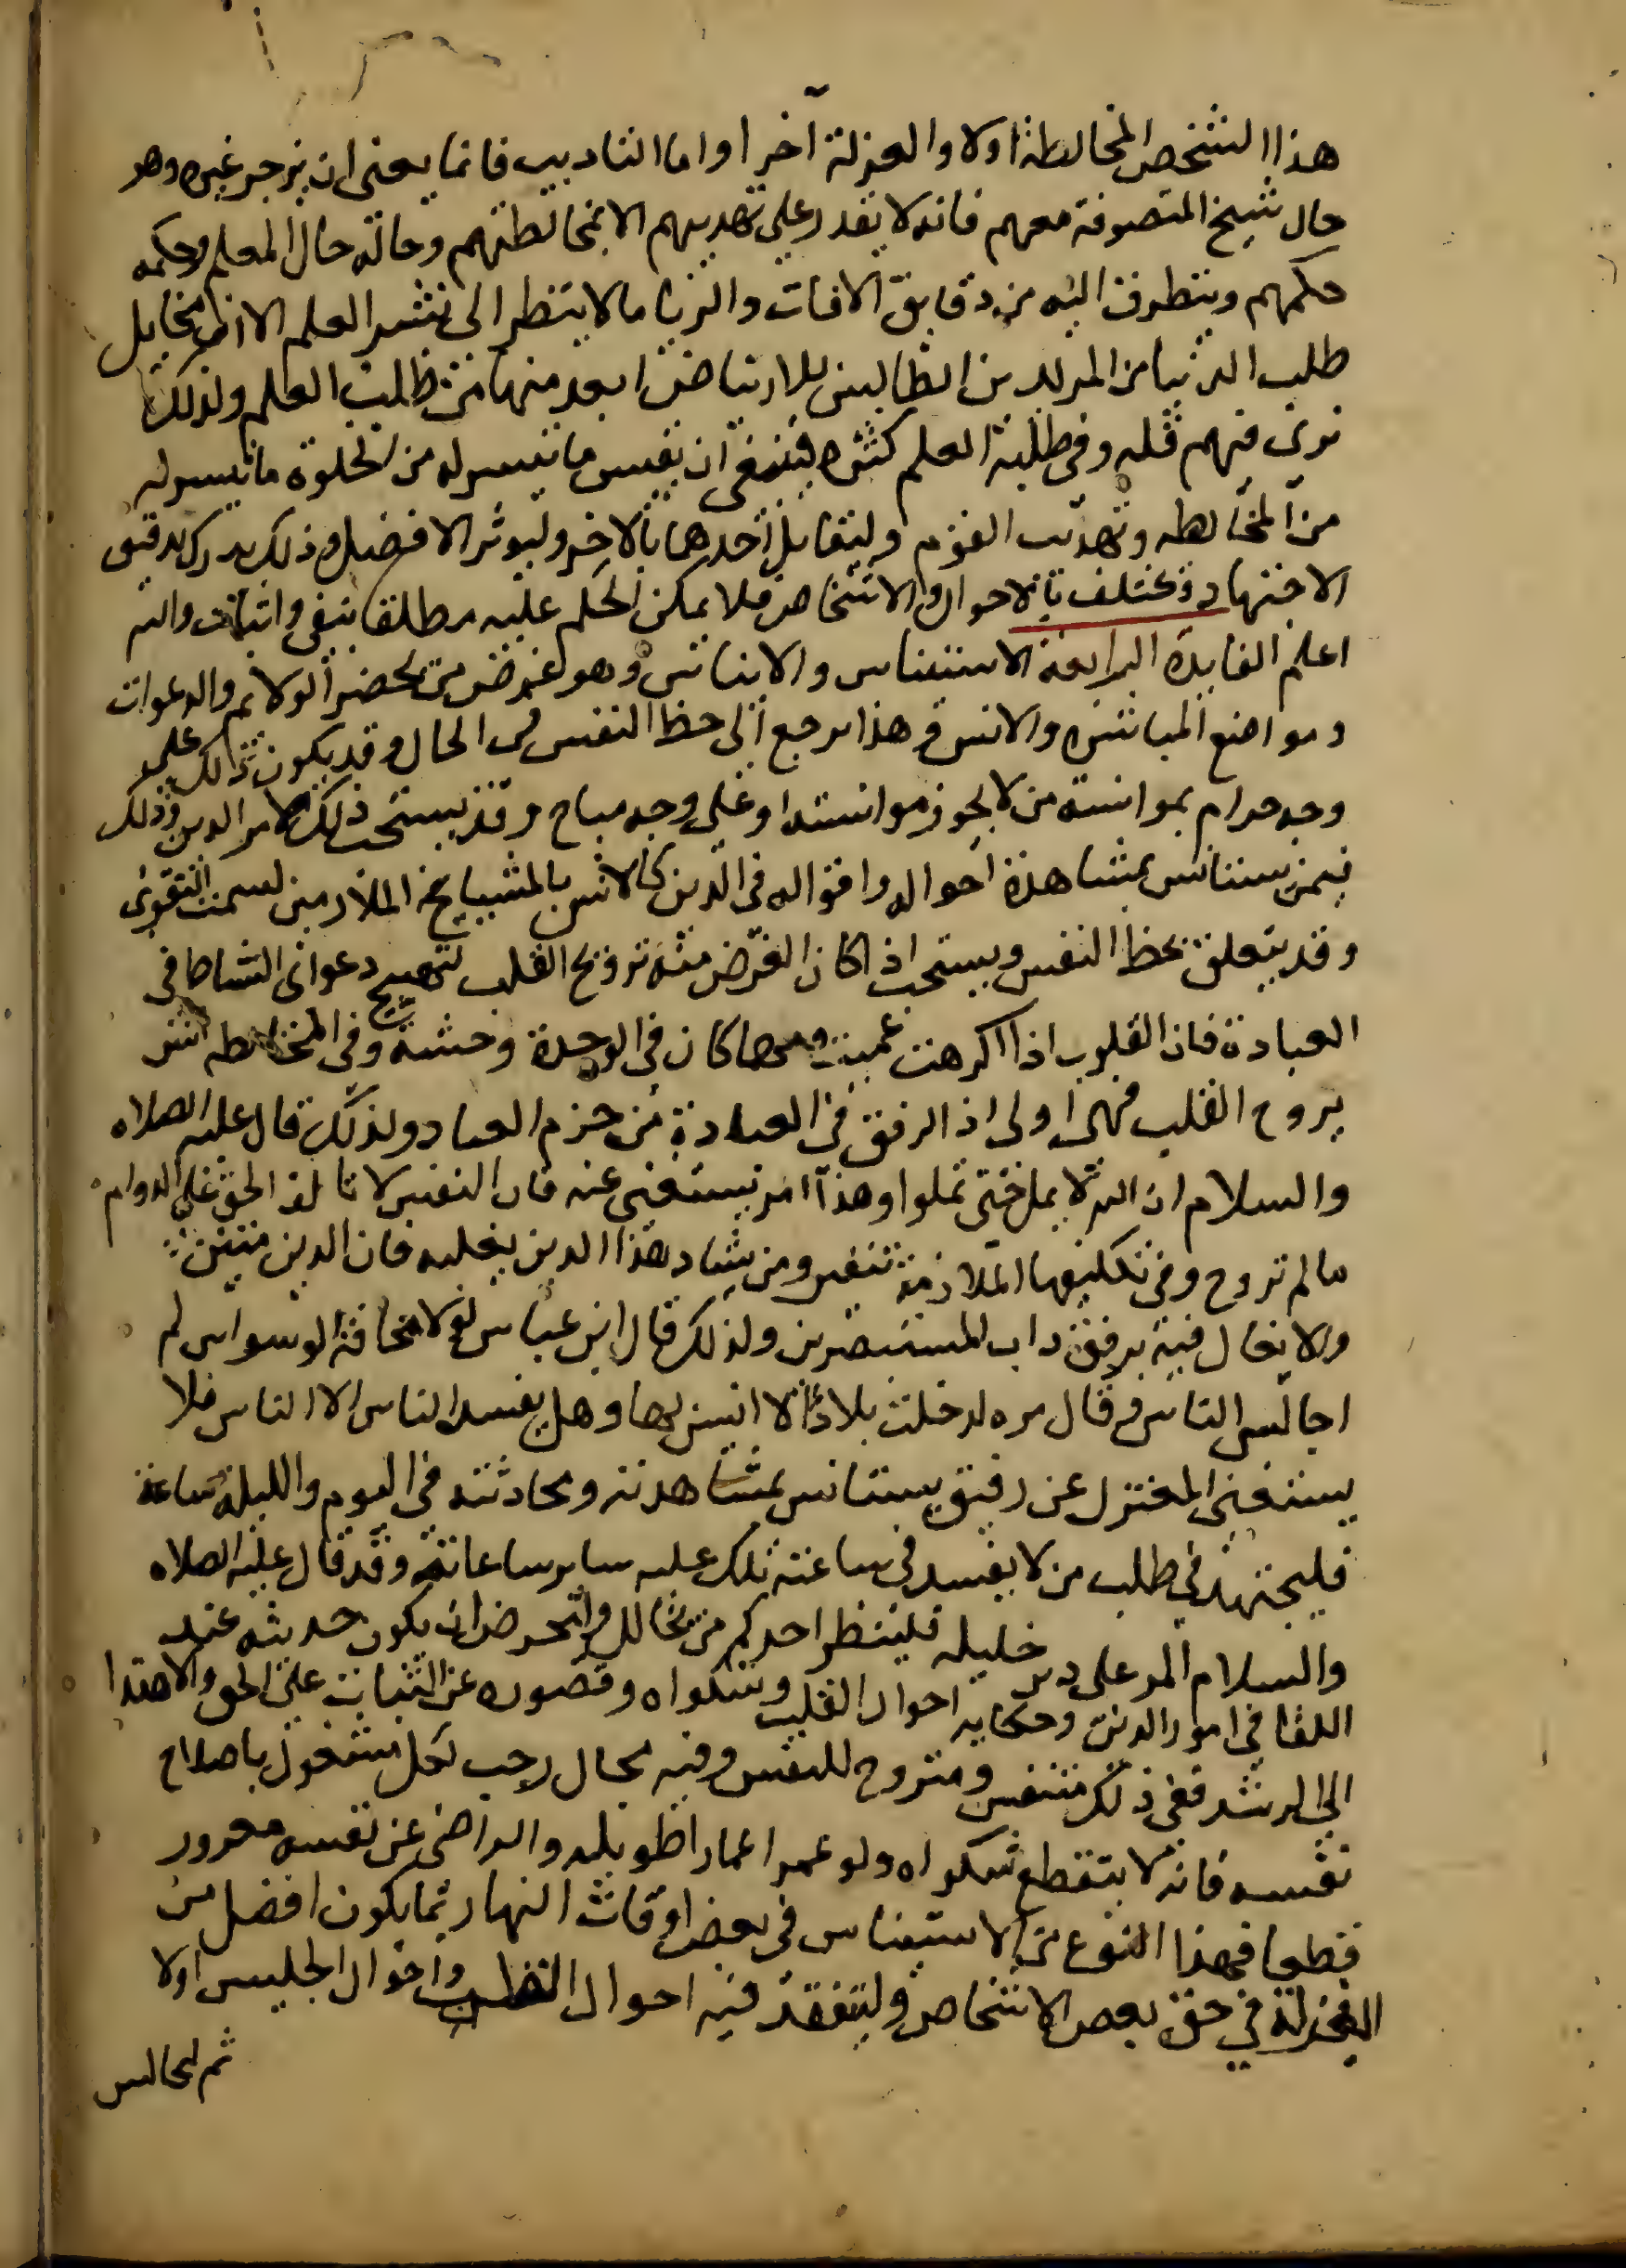 هذا الشخص المخالطة اولا والعزلة آخرا واما التاديب فانما يعنى ان يزجر غيره وهو
حال شيخ المتصوفة معهم فانه لا يقدر على تهذيبهم الا بمخالطتهم وحاله حال المعلم وحكمه
حكمهم ويتطرق اليه من دقايق الافات والريا ما لا يتطر الى نشر العلم الا ان مخايل
طلب الدنيا من المريدين الطالبين للارتياض ابعد منها من طلبت العلم ولذلك
نرى فيهم قله وفى طلبة العلم كثره فينبغى ان يقيس ما تيسر له من الخلوة ما تيسر له
من المخالطه وتهذيب القوم وليقابل احدهما بالاخر وليوثر الافضل وذلك يدرك بدقيق
الاجتهاد وتختلف بالاحوال والاشخاص فلا يمكن الحكم عليه مطلقا بنفى واثبات والله
اعلم الفايدة الرابعة الاستيناس والايناس وهو غرض من يحضر الولايم والدعوات
ومواضع المباشره والانس وهذا يرجع الى حظ النفس فى الحال وقد يكون ذالك على
وجه حرام بموانسة من لا يجوز موانسته او على وجه مباح وقد يستحب ذلك لامر الدين وذلك
فيمن يستانس بمشاهدة احواله واقواله فى الدين كالانس بالمشايخ الملازمين لسمت التقوى
وقد يتعلق بحظ النفس ويستحب اذا كان الغرض منه ترويح القلب لتهييج دعوانى النشاط فى
العبادة فان القلوب اذا اكرهت عميت ومهما كان فى الوحدة وحشة وفى المخالطه انس
يروح القلب فهى اولى اذ الرفق فى العبادة من حزم العباد ولذلك قال عليه الصلاه
والسلام ان الله لا يمل حتى تملوا وهذا امر يستغنى عنه فان النفس لا تالف الحق على الدوام
ما لم تروح وفى تكليفها الملازمة تنفير ومن يشاد هذا الدين يغلبه فان الدين متين
والايغال فيه برفق داب المستبصرين ولذلك قال ابن عباس لولا مخافة الوسواس لم
اجالس الناس وقال مره لدخلت بلادا لا انيس بها وهل يفسد الناس الا الناس فلا
يستغنى المعتزل عن رفيق يستانس بمشاهدته ومحادثته فى اليوم والليلة ساعة
فليجتهد فى طلب من لا يفسد فى ساعته تلك عليه ساير ساعاته وقد قال عليه الصلاه
والسلام المر على دين خليله فلينظر احدكم من يخالل وليحرص ان يكون حديثه عند
اللقا فى امور الدين وحكايه احوال القلب وشكواه وقصوره عن الثبات على الحق والاهتدا
الى الرشد ففى ذلك متنفس ومتروح للنفس وفيه مجال رحب لكل مشغول باصلاح
نفسه فانه لا يتقطع شكواه ولو عمر اعمارا طويله والراضى عن نفسه مغرور
قطعا فهذا النوع من الاستيناس فى بعض اوقات النهار ثما يكون افضل من
العزلة فى حق بعض الاشخاص وليتفقد فيه احوال القلب واحوال الجليس اولا
ثم ليجالس